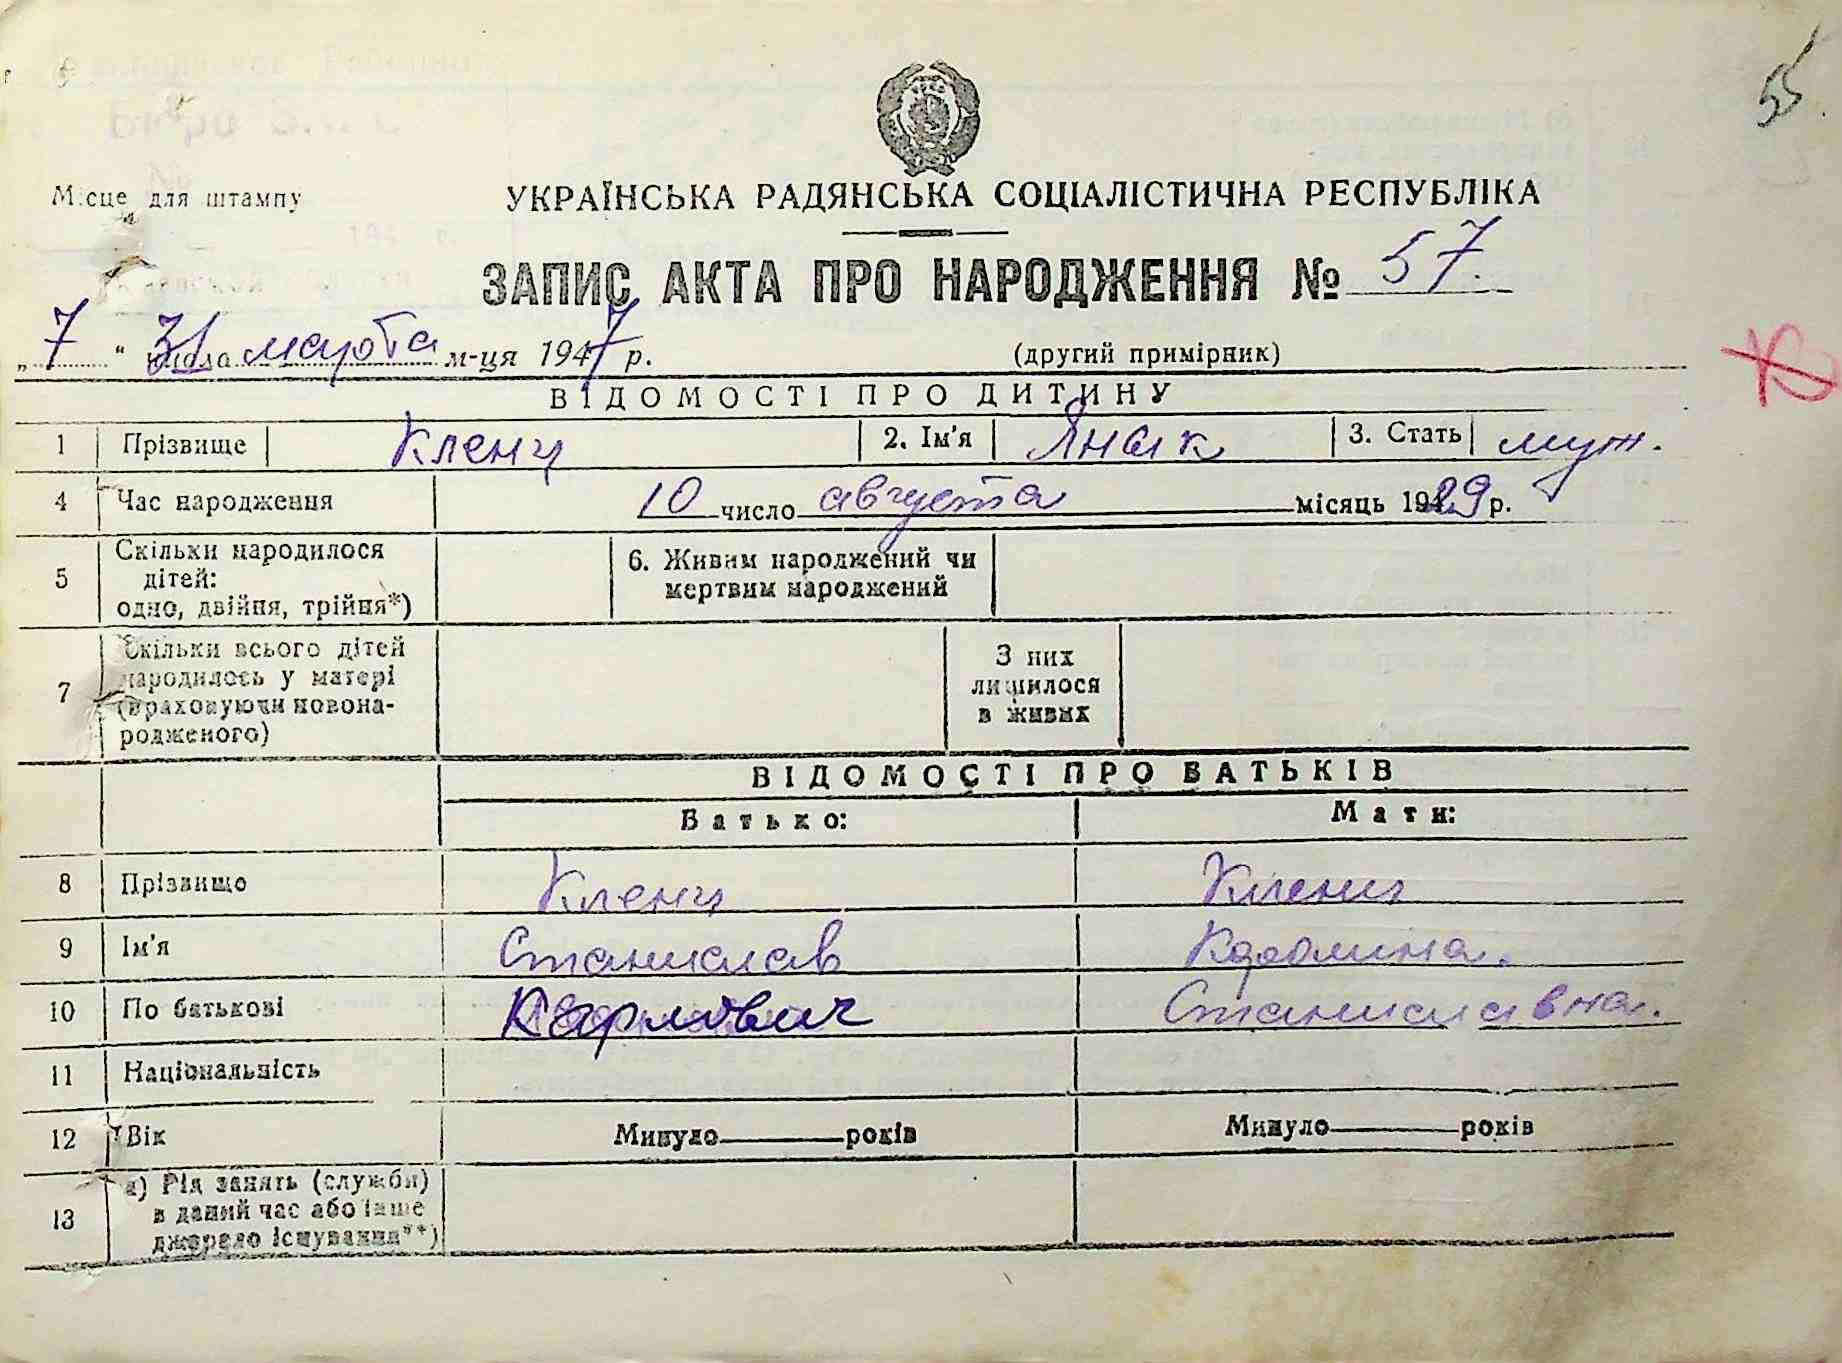 55
Місце для штампу
УКРАЇНСЬКА РАДЯНСЬКА СОЦІАЛІСТИЧНА РЕСПУБЛІКА
ЗАПИС АКТА ПРО НАРОДЖЕННЯ № 57.
„7“ 31 марта м-ця 1947 р. (другий примірник)
ВІДОМОСТІ ПРО ДИТИНУ
1 Прізвище Кленц 2. Ім'я Яньік 3. Стать муж.
4 Час народження 10 число августа місяць 1929 р.
5 Скільки народилося дітей: одно, двійня, трійня*) 6. Живим народжений чи мертвим народжений
7 Скільки всього дітей народилось у матері (враховуючи новонародженого) З них лишилося в живих
ВІДОМОСТІ ПРО БАТЬКІВ
Батько: Мати:
8 Прізвищо Кленц Кленц
9 Ім'я Станислав Каролина.
10 По батькові Карлович Станиславвна.
11 Національність
12 Вік Минуло рокiв Минуло років
13 а) Рід занять (служби) в даний час або інше джерело існування**)